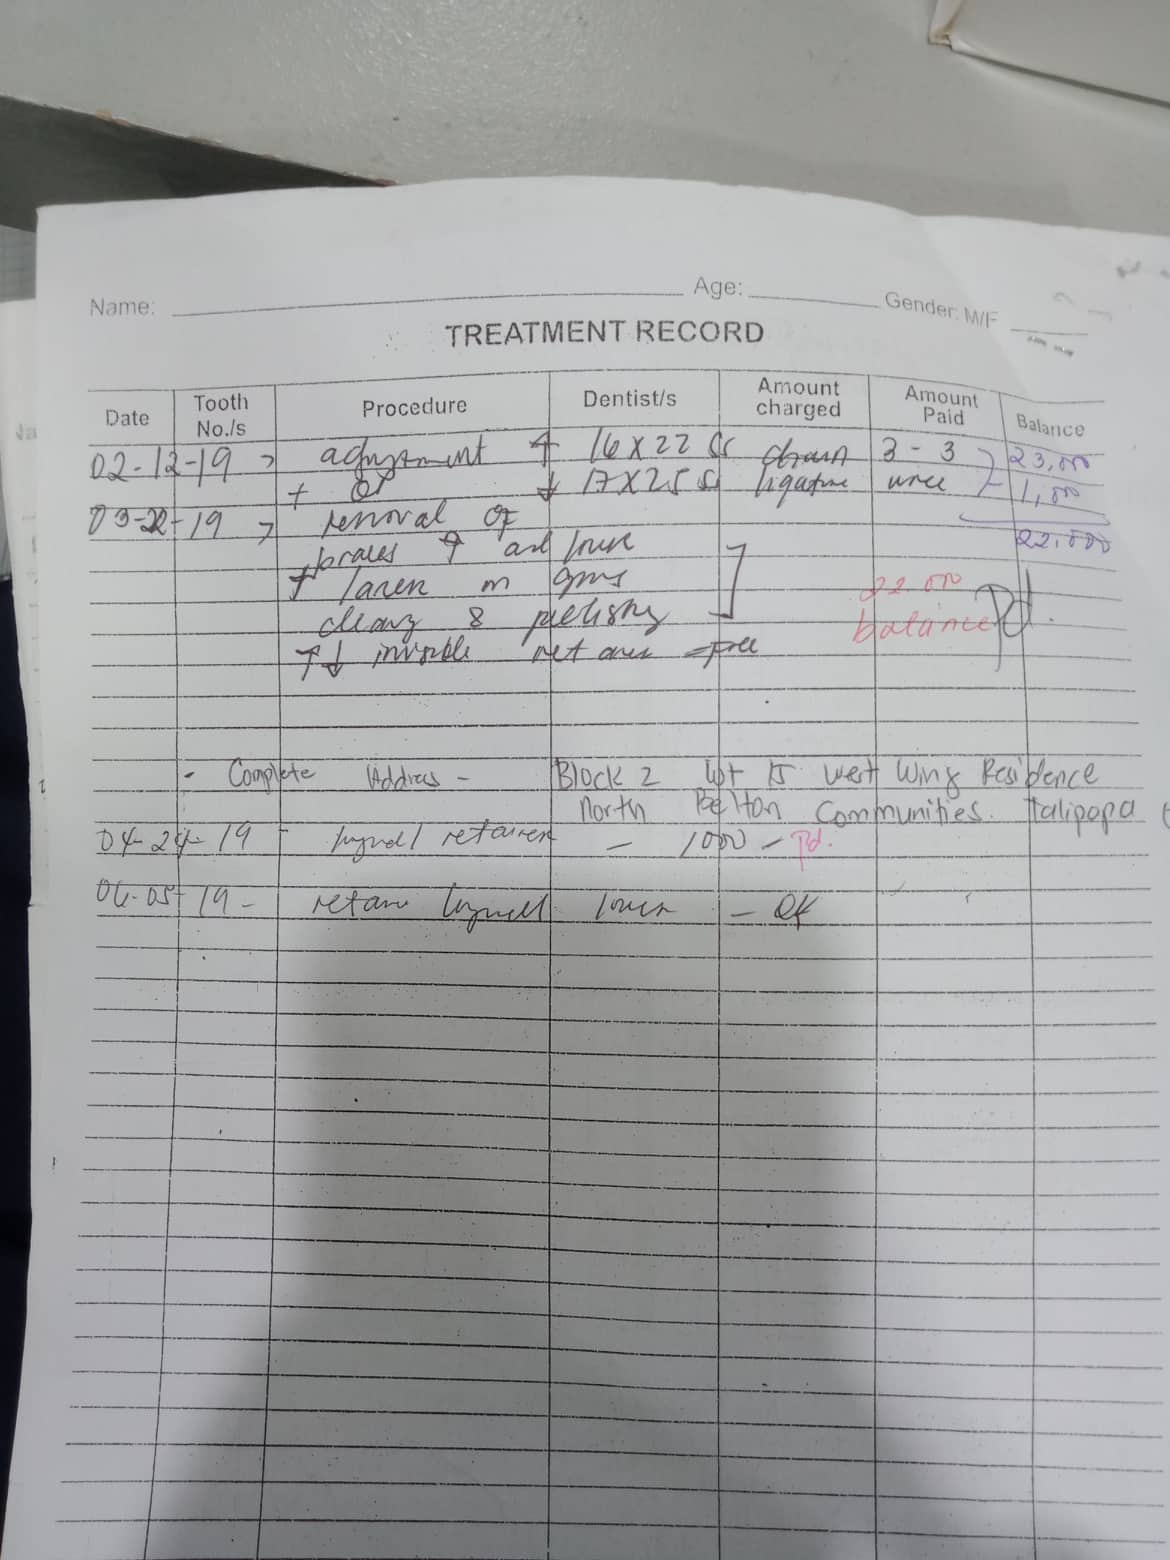 Name: Age: Gender: M/F
TREATMENT RECORD
Date Tooth No./s Procedure Dentist/s Amount charged Amount Paid Balance
02-12-19 adjustment ↑ 16 X 22 SS chain 3 - 3 23,000
+ ↓ 17 X 25 SS ligature wire 1,000
03-22-19 removal of 22,000
braces ↑ and lower
+ laser on gms 22 000
& balance Pd.
↑↓ invisible = free
- Complete Address - Block 2 Lot 15 West Wing Residence
North Belton Communities. Talipapa
04-24-19 - retainer - 1000 - Pd.
06-05-19 - lower - OK